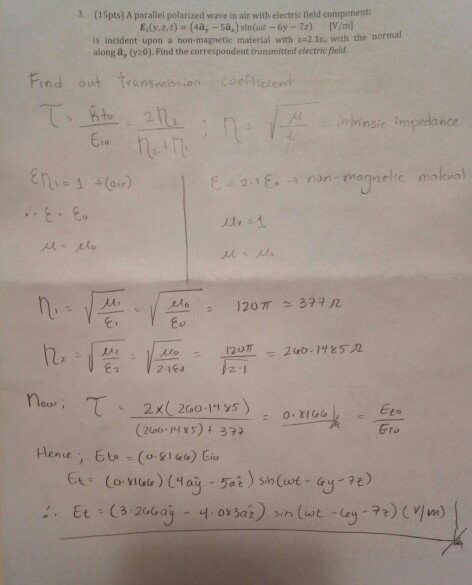 3. (15pts) A parallel polarized wave in air with electric field component:
E_i(y,z,t) = (4â_y − 5â_z) sin(ωt − 6y − 7z) [V/m]
is incident upon a non-magnetic material with ε=2.1ε₀ with the normal
along â_y (y≥0). Find the correspondent transmitted electric field.
Find out transmission coefficient
τ = Eto/Eio = 2η₂/(η₂+η₁) ; η = √(μ/ε) = intrinsic impedance
εr₁ = 1 → (air)
∴ ε = ε₀
μ = μ₀
ε = 2.1 ε₀ → non-magnetic material
μr = 1
μ = μ₀
η₁ = √(μ₁/ε₁) = √(μ₀/ε₀) = 120π ≃ 377 Ω
η₂ = √(μ₂/ε₂) = √(μ₀/2.1ε₀) = 120π/√2.1 = 260.1485 Ω
Now; τ = 2×(260.1485)/((260.1485)+377) = 0.8166 = Eto/Eio
Hence; Eto = (0.8166) Eio
Et = (0.8166) (4aŷ − 5aẑ) sin(ωt − 6y − 7z)
∴ Et = (3.266aŷ − 4.083aẑ) sin (ωt − 6y − 7z) (V/m)